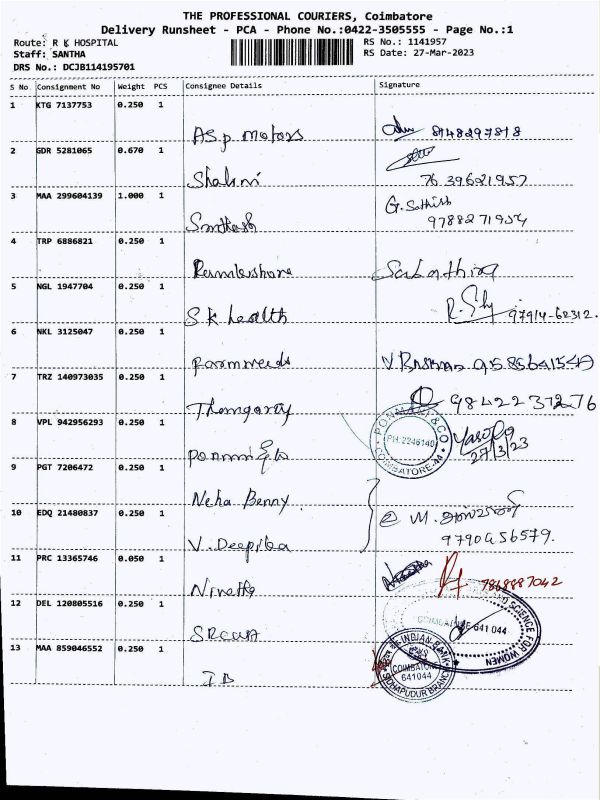 THE PROFESSIONAL COURIERS, Coimbatore
Delivery Runsheet - PCA - Phone No.:0422-3505555 - Page No.:1
Route: R K HOSPITAL
RS No.: 1141957
Staff: SANTHA
RS Date: 27-Mar-2023
DRS No.: DCJB114195701
S No Consignment No Weight PCS Consignee Details Signature
1 KTG 7137753 0.250 1
A.S.p. motors 8148297818
2 GDR 5281065 0.670 1
Shalini 7639621957
3 MAA 299604139 1.000 1
G. Sathish
Santhosh 9788271954
4 TRP 6886821 0.250 1
5 NGL 1947704 0.250 1
S k health 97914-62312.
6 NKL 3125047 0.250 1
7 TRZ 140973035 0.250 1
9842237276
8 VPL 942956293 0.250 1
PONMANI & CO
PH:2246140
COIMBATORE-44
27/3/23
9 PGT 7206472 0.250 1
Neha Benny
10 EDQ 21480837 0.250 1
V. Deepika 9790456579.
11 PRC 13365746 0.050 1
7868887042
12 DEL 120805516 0.250 1
SCIENCE FOR WOMEN
COIMBATORE-641 044
13 MAA 859046552 0.250 1
INDIAN BANK
COIMBATORE
641044
SIDHAPUDUR BRANCH
IB